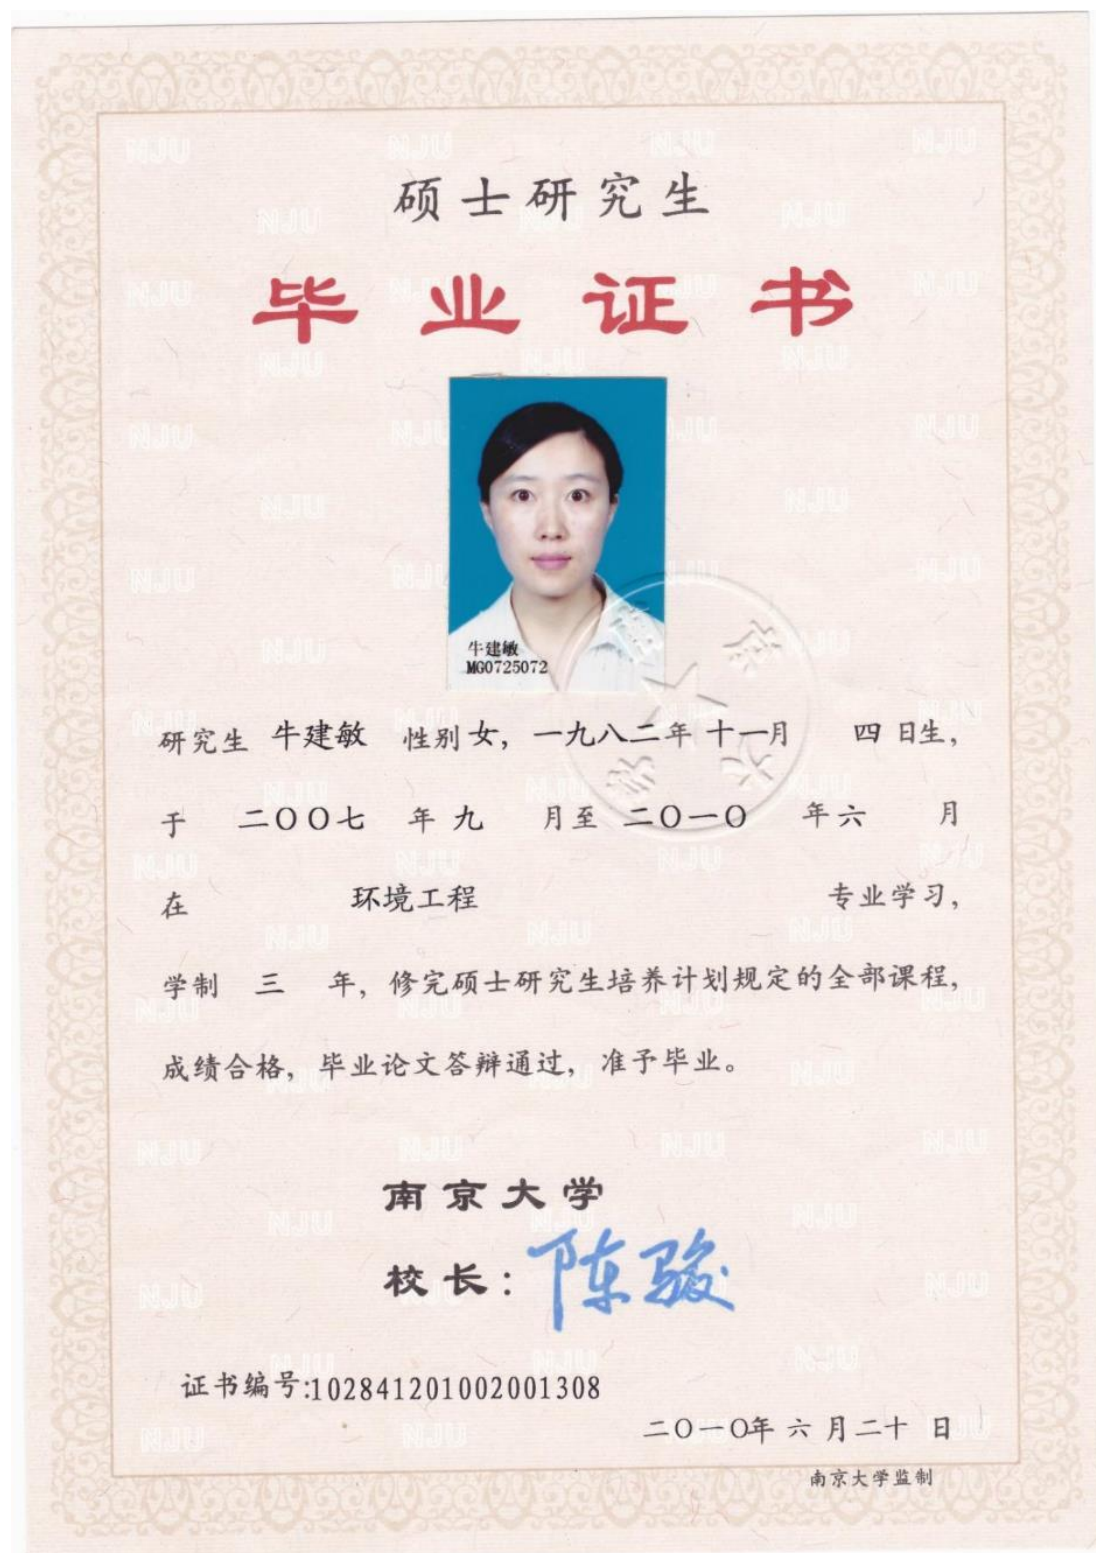 硕士研究生
毕业证书
牛建敏
MG0725072
南京大学
研究生 牛建敏 性别 女，一九八二年 十一月 四 日生，
于 二〇〇七 年 九 月至 二〇一〇 年 六 月
在 环境工程 专业学习，
学制 三 年，修完硕士研究生培养计划规定的全部课程，
成绩合格，毕业论文答辩通过，准予毕业。
南京大学
校长：陈骏
证书编号:102841201002001308
二〇一〇年 六 月二十 日
南京大学监制
NJU